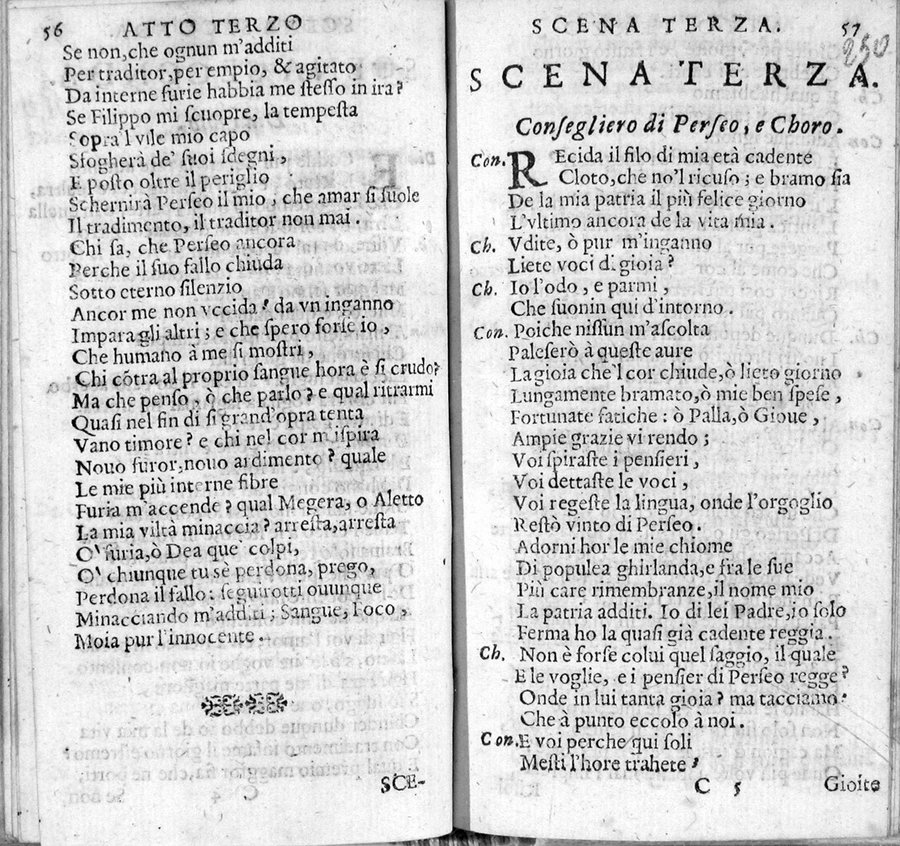 56 ATTO TERZO
Se non, che ognun m'additi
Per traditor, per empio, & agitato
Da interne furie habbia me ſteſſo in ira?
Se Filippo mi ſcuopre, la tempeſta
Sopra'l vile mio capo
Sfogherà de' ſuoi ſdegni,
E poſto oltre il periglio
Schernirà Perſeo il mio, che amar ſi ſuole
Il tradimento, il traditor non mai.
Chi ſa, che Perſeo ancora
Perche il ſuo fallo chiuda
Sotto eterno ſilenzio
Ancor me non vccida? da vn inganno
Impara gli altri; e che ſpero forſe io,
Che humano à me ſi moſtri,
Chi cõtra al proprio ſangue hora è ſi crudo?
Ma che penſo, ò che parlo? e qual ritrarmi
Quaſi nel fin di ſi grand'opra tenta
Vano timore? e chi nel cor m'iſpira
Nouo furor, nouo ardimento? quale
Le mie più interne fibre
Furia m'accende? qual Megera, o Aletto
La mia viltà minaccia? arreſta, arreſta
O' furia, ò Dea que' colpi,
O' chiunque tu sè perdona, prego,
Perdona il fallo: ſeguirotti ouunque
Minacciando m'additi; Sangue, Foco,
Moia pur l'innocente.
SCE-
SCENA TERZA. 57
250
SCENA TERZA.
Conſegliero di Perſeo, e Choro.
Con. REcida il filo di mia età cadente
Cloto, che no'l ricuſo; e bramo ſia
De la mia patria il più felice giorno
L'vltimo ancora de la vita mia.
Ch. Vdite, ò pur m'inganno
Liete voci di gioia?
Ch. Io l'odo, e parmi,
Che ſuonin qui d'intorno.
Con. Poiche niſſun m'aſcolta
Paleſerò à queſte aure
La gioia che'l cor chiude, ò lieto giorno
Lungamente bramato, ò mie ben ſpeſe,
Fortunate fatiche: ò Palla, ò Gioue,
Ampie grazie vi rendo;
Voi ſpiraſte i penſieri,
Voi dettaſte le voci,
Voi regeſte la lingua, onde l'orgoglio
Reſtò vinto di Perſeo.
Adorni hor le mie chiome
Di populea ghirlanda, e fra le ſue
Più care rimembranze, il nome mio
La patria additi. Io di lei Padre, io ſolo
Ferma ho la quaſi già cadente reggia.
Ch. Non è forſe colui quel ſaggio, il quale
E le voglie, e i penſier di Perſeo regge?
Onde in lui tanta gioia? ma tacciamo:
Che à punto eccolo à noi.
Con. E voi perche qui ſoli
Meſti l'hore trahete?
C 5 Gioite